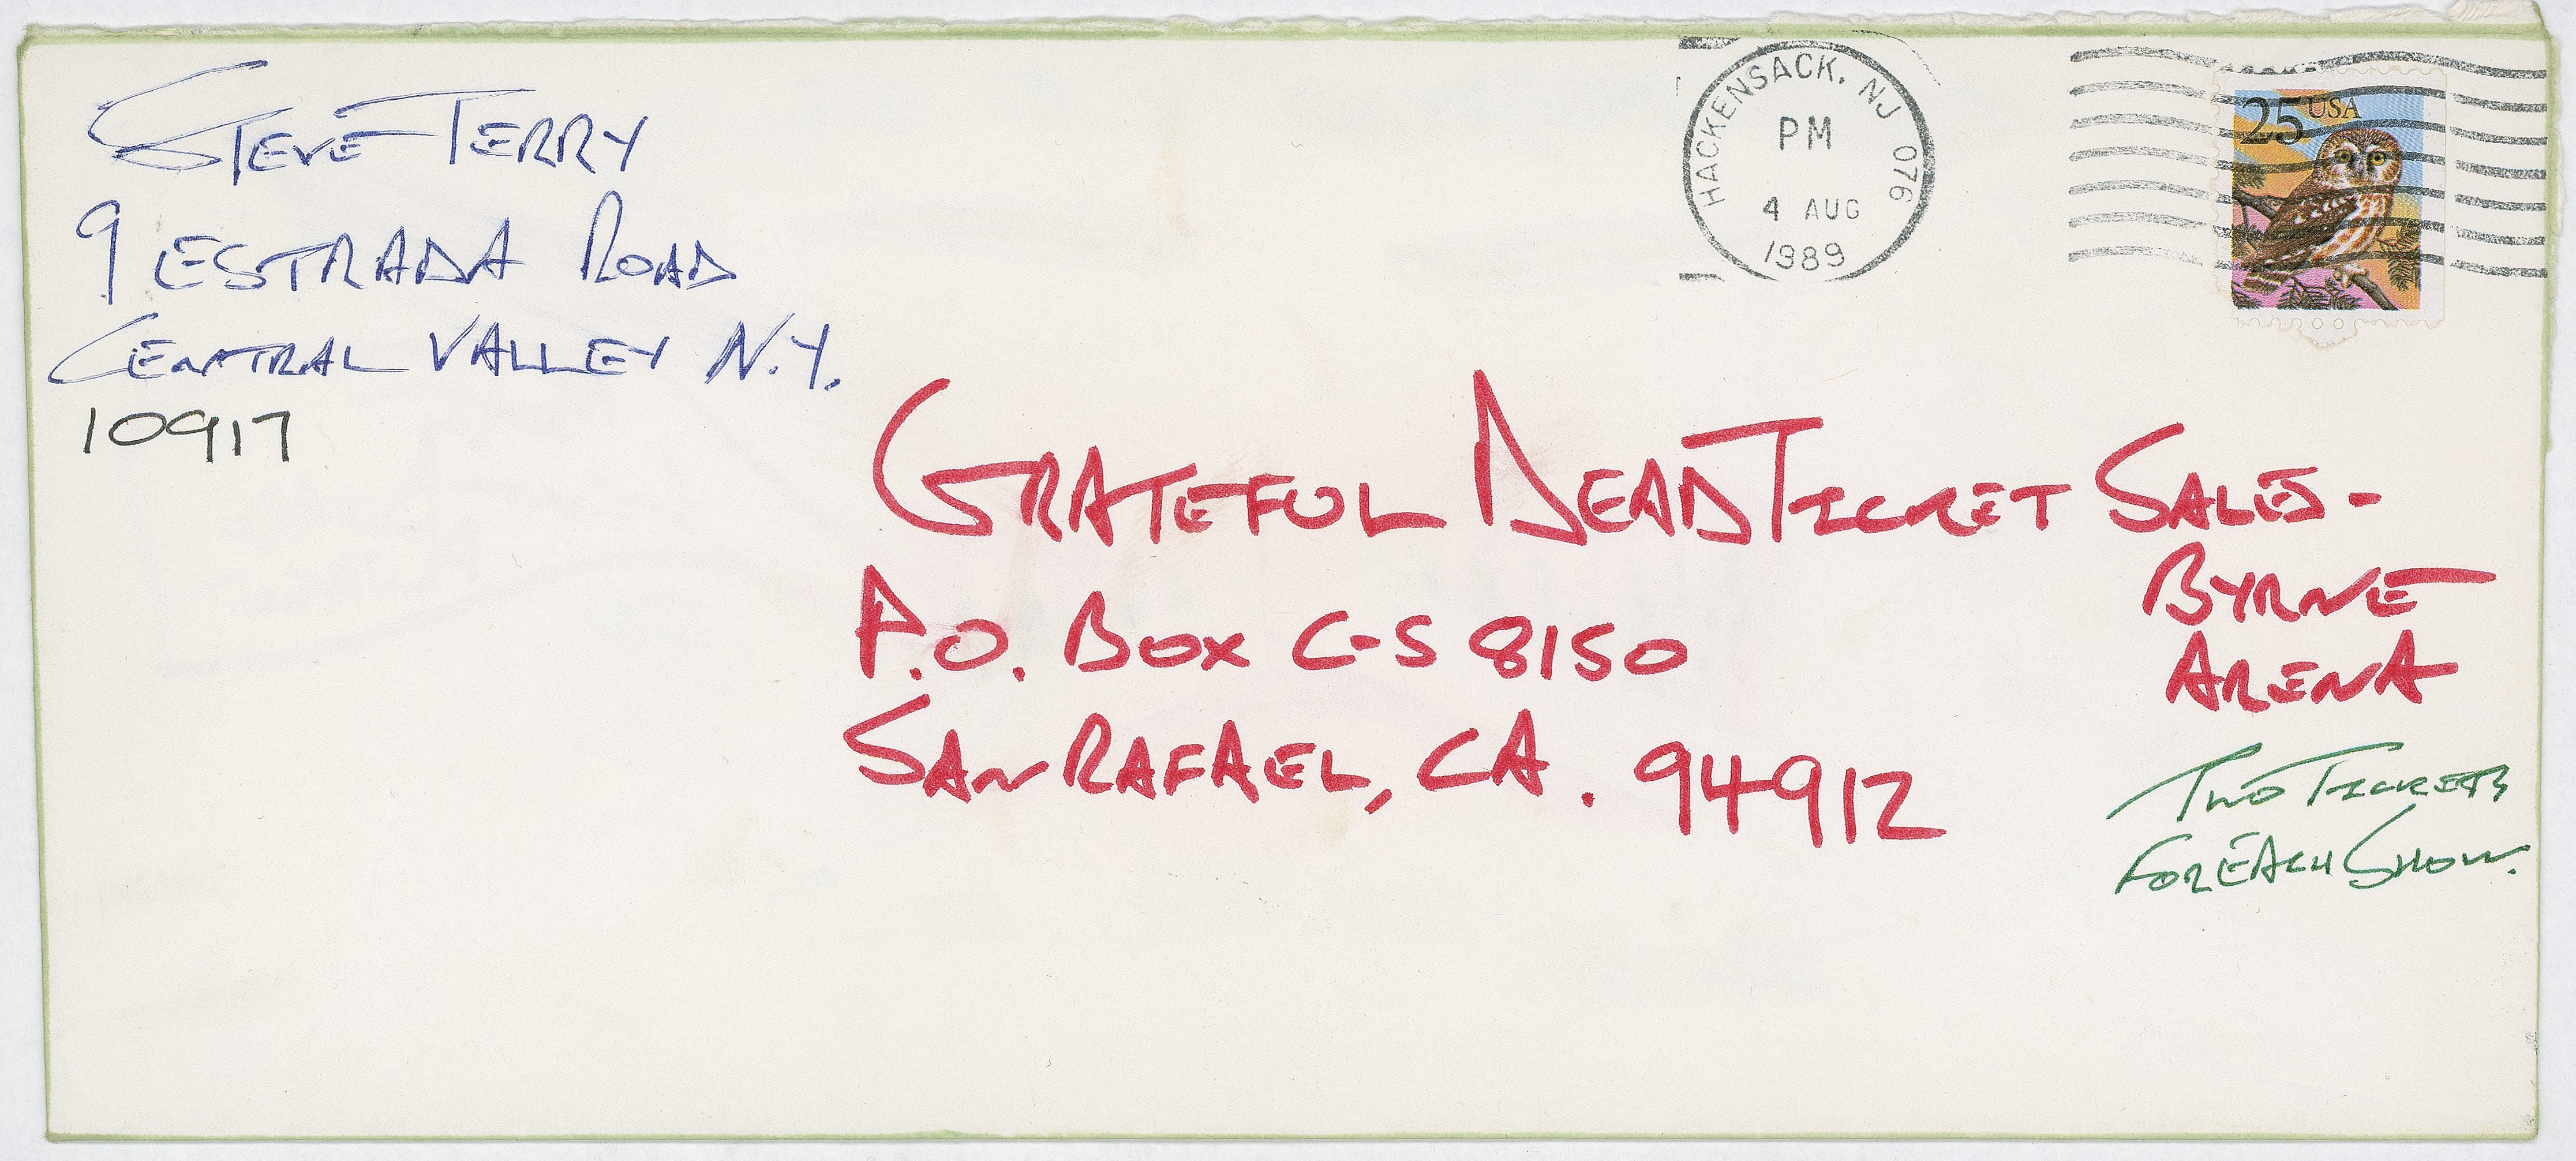 STEVE TERRY
9 ESTRADA ROAD
CENTRAL VALLEY N.Y.
10917
HACKENSACK, NJ 076
PM
4 AUG
1989
25 USA
GRATEFUL DEAD TICKET SALES-
BYRNE
ARENA
P.O. BOX C-S 8150
SAN RAFAEL, CA. 94912
TWO TICKETS
FOR EACH SHOW.